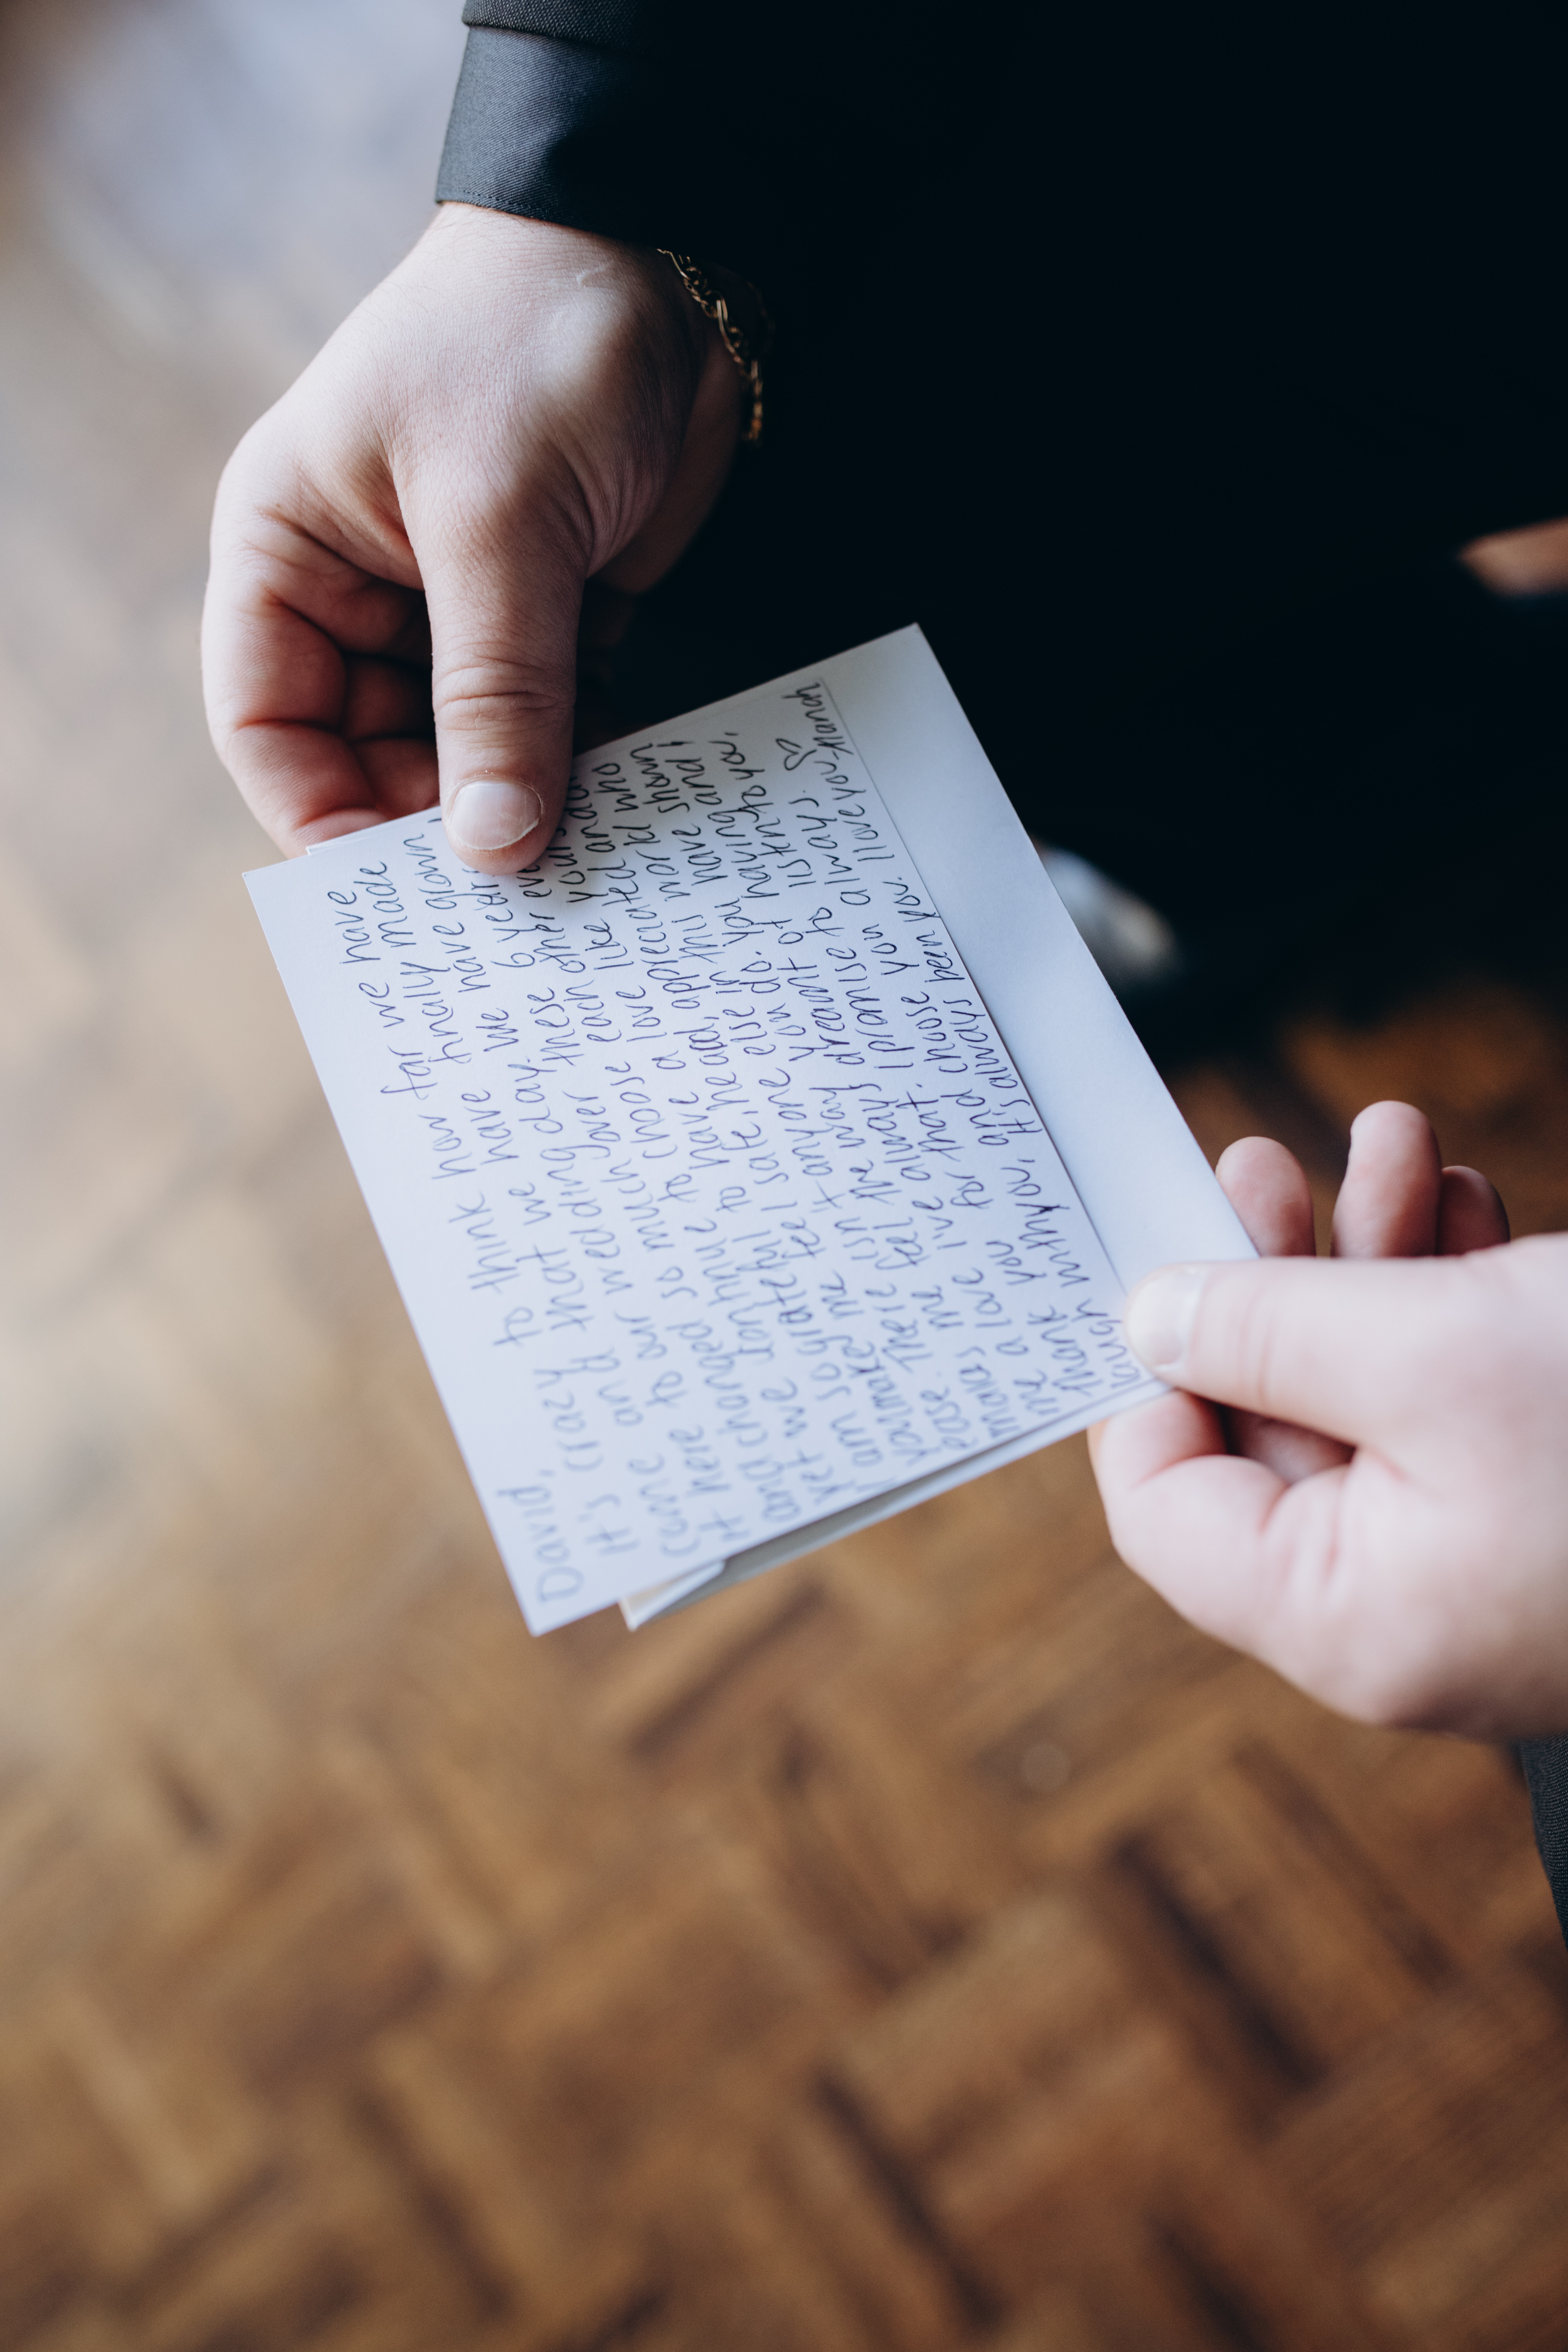 David,
It's crazy to think how far we have
come and that we have finally made
it here to our wedding day. We have grown
and changed so much over these 6 years
yet we continue to choose each other
I am so grateful to have a love like yours.
you make me feel safe, heard, appreciated, and at
ease. There isn't anyone else in this world who
makes me feel the way you do. You have shown
me a love i've always dreamt of having and I
thank you for that. I promise to listen to you,
laugh with you, and choose you always. ♡
It's always been you. I love you -